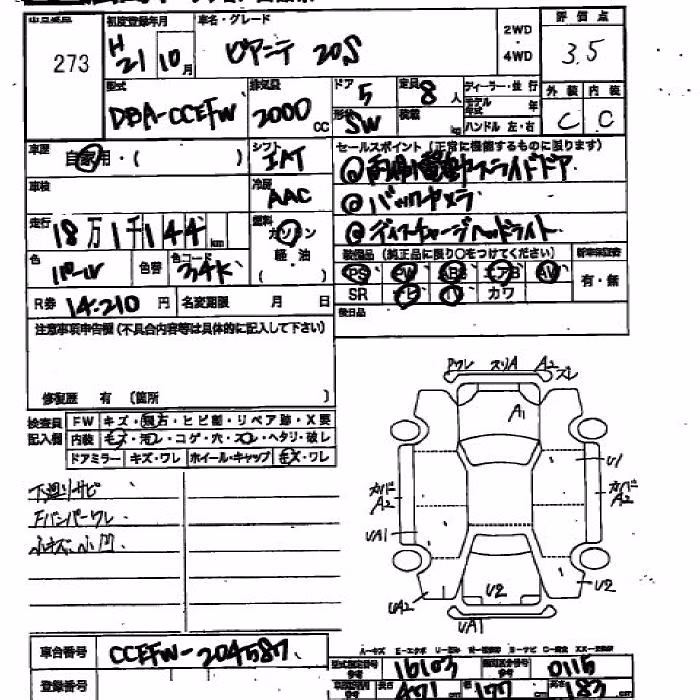 273
初度登録年月
H21 10月
車名・グレード
ビアンテ 20S
2WD・4WD
評価点
3.5
型式
DBA-CCEFW
排気量
2000 CC
ドア
5
定員
8人
形状
SW
積載
kg
ディーラー・並行
モデル年式 年
ハンドル 左・右
外装 内装
C C
車歴
自家用・( )
シフト
IAT
セールスポイント (正常に機能するものに限ります)
①両側電動スライドドア
②バックカメラ
③ディスチャージヘッドライト
車検
冷房
AAC
走行
18万1千144km
燃料
ガソリン
軽・油
( )
装備品 (純正品に限り○をつけてください)
PS PW ABS エアB AW
SR ナビ カワ
新車保証書
有・無
色
パール
色替
色コード
34K
R券 14.210 円
名変期限 月 日
後日品
注意事項申告欄 (不具合内容等は具体的に記入して下さい)
修復歴 有 〔箇所 〕
検査員記入欄
FW キズ・飛石・ヒビ割・リペア跡・X要
内装 キズ・汚レ・コゲ・穴・スレ・ヘタリ・破レ
ドアミラー キズ・ワレ ホイール・キャップ キズ・ワレ
下廻リサビ
Fバンパーワレ
小キズ、小凹
Pワレ スリA A2 ズレ
A1
U1
カバーA2
カバーA2
UA1
U2
U2
UA2
UA1
車台番号
CCEFW-204587
登録番号
A－キズ E－エクボ
型式指定番号
16103
類別区分番号
0116
長さ 471
幅 177
高さ 183